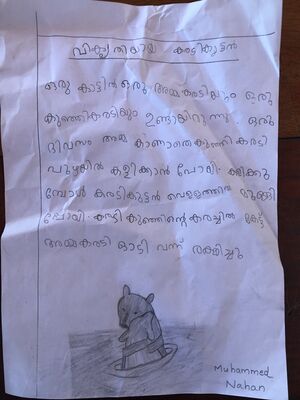 വികൃതിയായ കരടികുട്ടൻ
ഒരു കാട്ടിൽ ഒരു അമ്മകരടിയും ഒരു
കുഞ്ഞികരടിയും ഉണ്ടായിരുന്നു. ഒരു
ദിവസം അമ്മ കാണാതെ കുഞ്ഞികരടി
പുഴയിൽ കളിക്കാൻ പോയി. കളിക്കു
മ്പോൾ കരടികുട്ടൻ വെള്ളത്തിൽ മുങ്ങി
പ്പോയി. കരടി കുഞ്ഞിന്റെ കരച്ചിൽ കേട്ട്
അമ്മകരടി ഓടി വന്ന് രക്ഷിച്ചു
Muhammed
Nahan